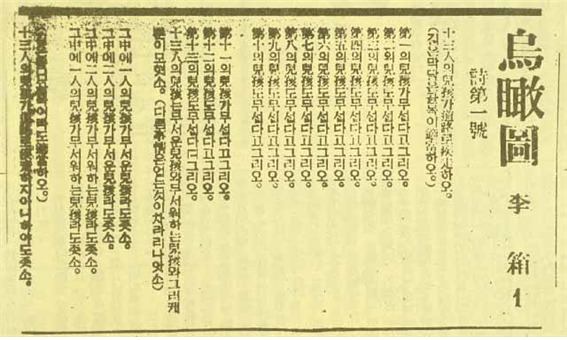 烏瞰圖
李箱 1
詩第一號
十三人의兒孩가道路로疾走하오。
(길은막달은골목이適當하오。)
第一의兒孩가무섭다고그리오。
第二의兒孩도무섭다고그리오。
第三의兒孩도무섭다고그리오。
第四의兒孩도무섭다고그리오。
第五의兒孩도무섭다고그리오。
第六의兒孩도무섭다고그리오。
第七의兒孩도무섭다고그리오。
第八의兒孩도무섭다고그리오。
第九의兒孩도무섭다고그리오。
第十의兒孩도무섭다고그리오。
第十一의兒孩가무섭다고그리오。
第十二의兒孩도무섭다고그리오。
第十三의兒孩도무섭다고그리오。
十三人의兒孩는무서운兒孩와무서워하는兒孩와그러케
뿐이모혓소。(다른事情은업는것이차라리나앗소)
그中에一人의兒孩가무서운兒孩라도좃소。
그中에二人의兒孩가무서운兒孩라도좃소。
그中에二人의兒孩가무서워하는兒孩라도좃소。
그中에一人의兒孩가무서워하는兒孩라도좃소。
골목이라도適當하오。)
十三人의兒孩가道路로疾走하지아니하야도좃소。